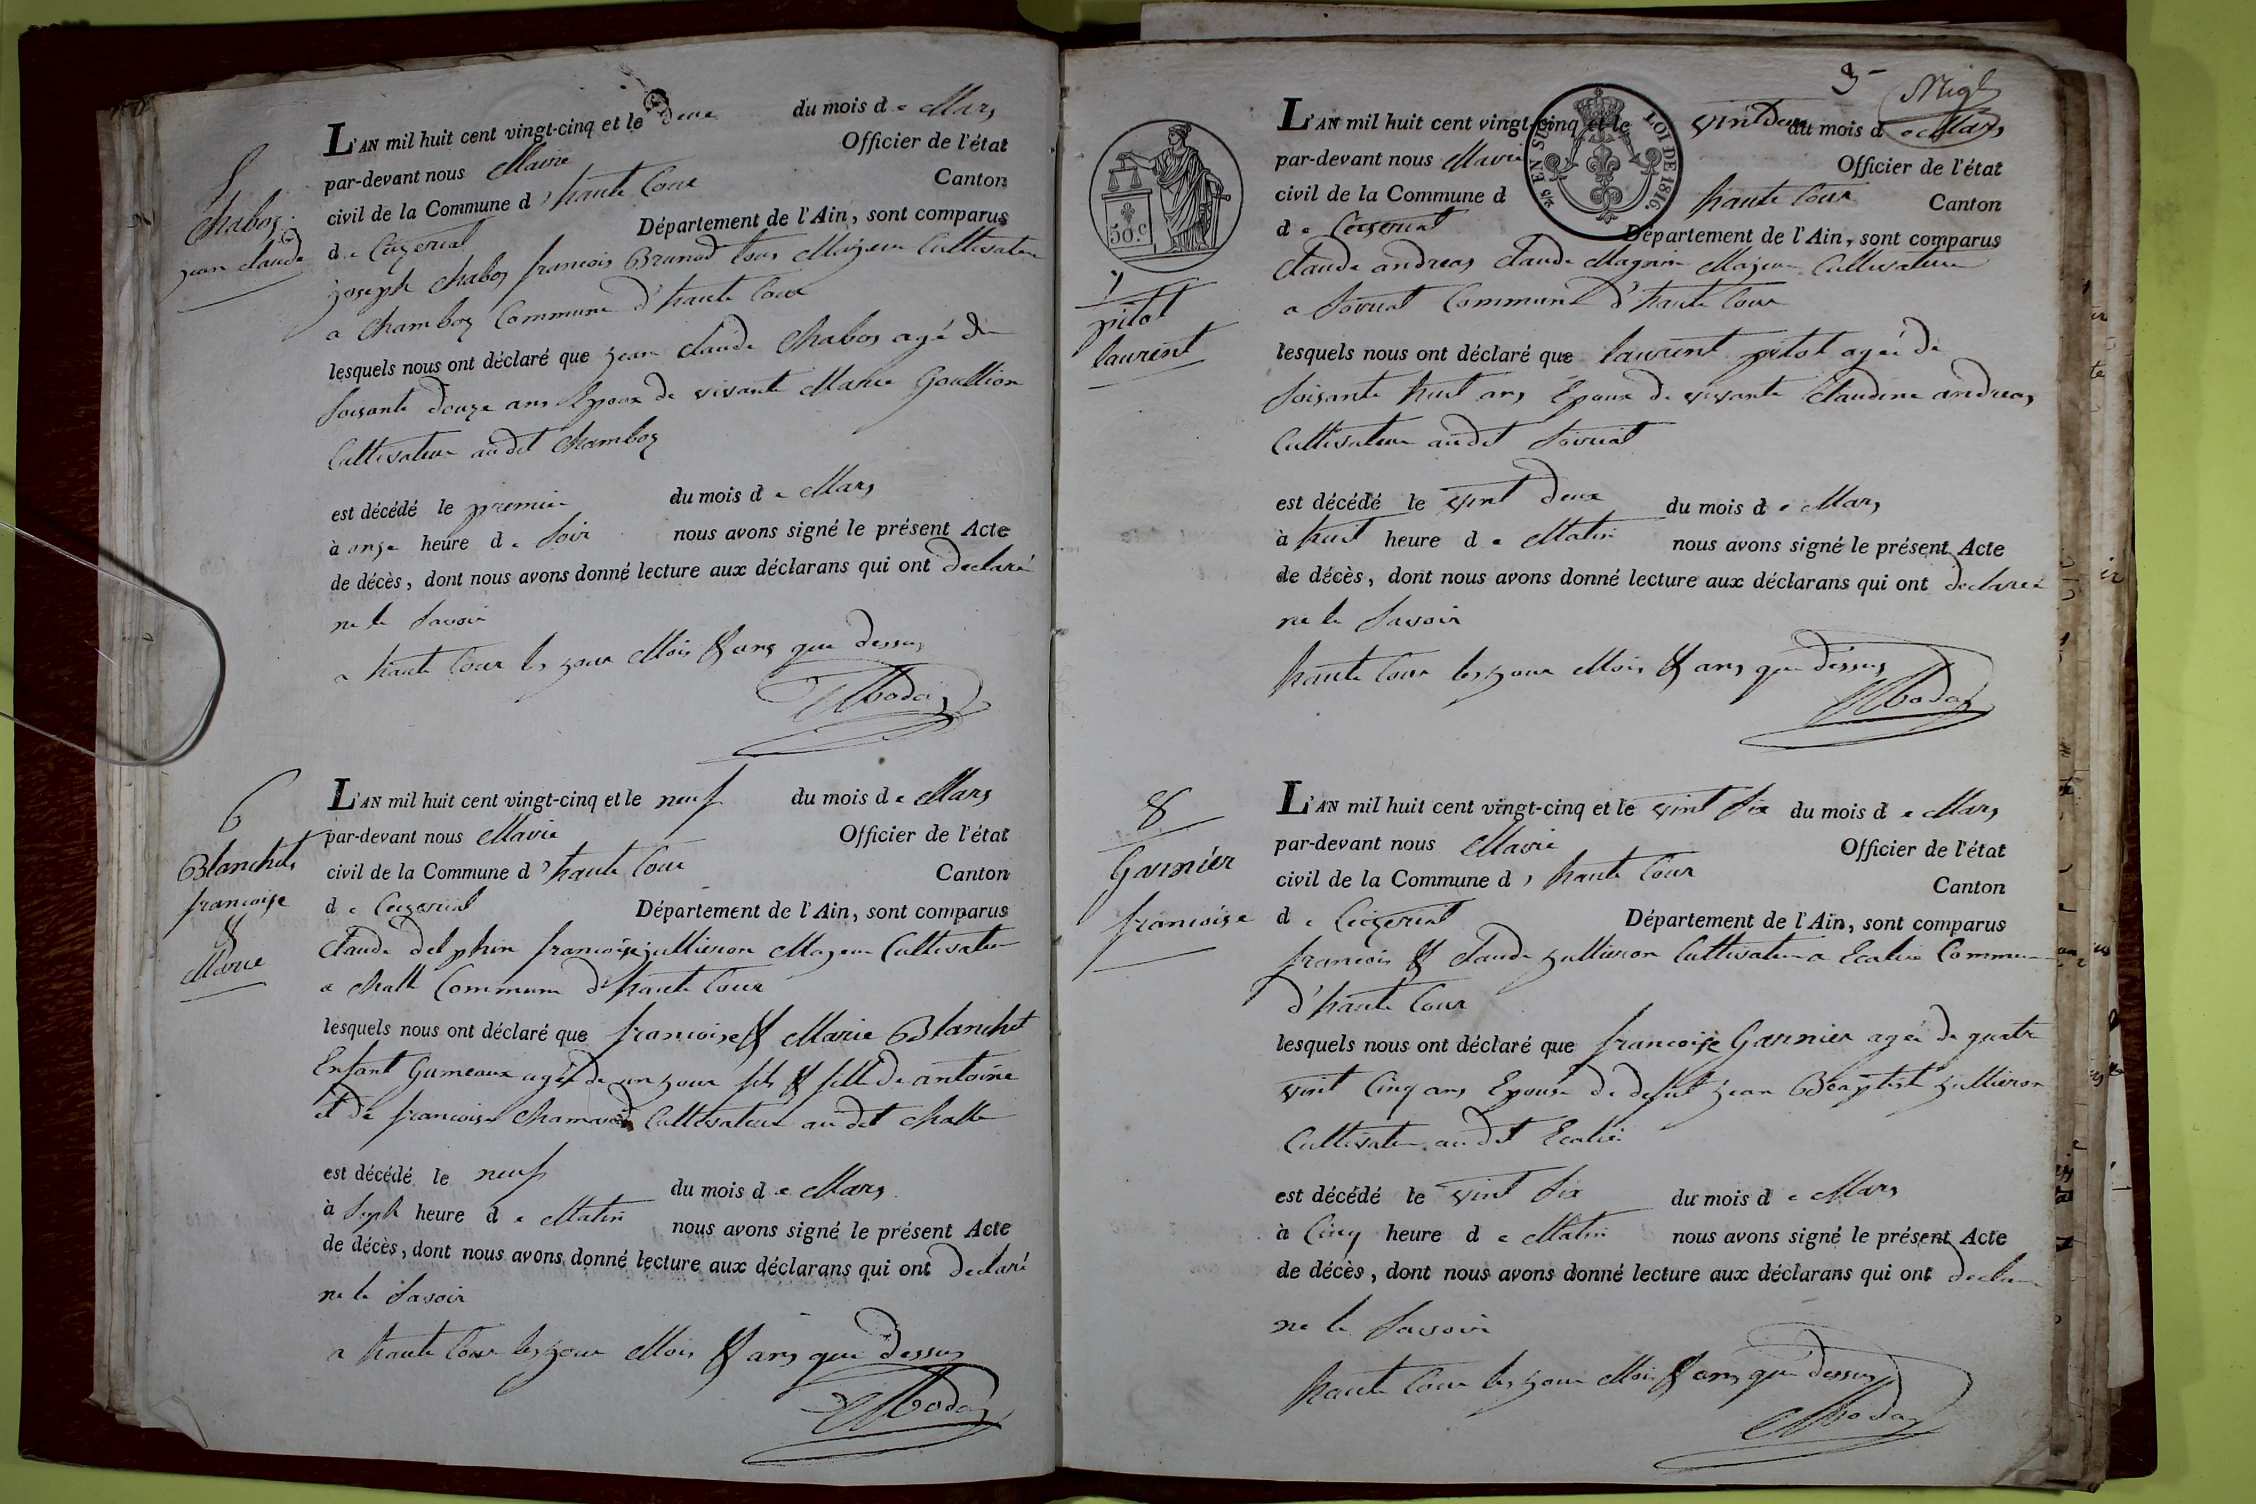 5
Chaboz
jean claude
L'AN mil huit cent vingt-cinq et le deux du mois de Mars
par-devant nous Maire Officier de l'état
civil de la Commune d'haute Cour Canton
de Ceyzeriat Département de l'Ain, sont comparus
joseph Chaboz francois Brunod tous Majeur Cultivateur
a Chamboz Commune d'haute Cour
lesquels nous ont déclaré que jean claude Chaboz agé de
soisante douze ans Epoux de vivante Marie Goullion
Cultivateur audit Chamboz
est décédé le premier du mois de Mars
à onze heure de Soir nous avons signé le présent Acte
de décès, dont nous avons donné lecture aux déclarans qui ont declaré
ne le Savoir
a haute Cour les jour Mois & ans que dessus
6
Blanchet
francoise
&
Marie
L'AN mil huit cent vingt-cinq et le neuf du mois de Mars
par-devant nous Maire Officier de l'état
civil de la Commune d'haute Cour Canton
de Ceyzeriat Département de l'Ain, sont comparus
Claude delphin francoise jullieron Majeur Cultivateur
a Challe Commune d'haute Cour
lesquels nous ont déclaré que francoise & Marie Blanchet
Enfant Gumeaux agée de un jour fils & fille de antoine
et de francoise Cultivateur audit Challe
est décédé le neuf du mois de Mars
à Sept heure de Matin nous avons signé le présent Acte
de décès, dont nous avons donné lecture aux déclarans qui ont declaré
ne le Savoir
a haute Cour les jour Mois & ans que dessus
3
50.c
EN SUS LOI DE 1816.
7
pitot
laurent
L'AN mil huit cent vingt-cinq et le vint deux du mois de Mars
par-devant nous Maire Officier de l'état
civil de la Commune d haute Cour Canton
de Ceyzeriat Département de l'Ain, sont comparus
Claude andreas Claude Magnin Majeur Cultivateur
a Soiriat Commune d'haute Cour
lesquels nous ont déclaré que laurent pitot agée de
soisante huit ans Epoux de vivante Claudine andreas
Cultivateur audit Soiriat
est décédé le vint deux du mois de Mars
à huit heure de Matin nous avons signé le présent Acte
de décès, dont nous avons donné lecture aux déclarans qui ont declaré
ne le Savoir
haute Cour les jour Mois & ans que dessus
8
Garnier
francoise
L'AN mil huit cent vingt-cinq et le vint Six du mois de Mars
par-devant nous Maire Officier de l'état
civil de la Commune d'haute Cour Canton
de Ceyzeriat Département de l'Ain, sont comparus
francois & Claude jullieron Cultivateur a Commune
d'haute Cour
lesquels nous ont déclaré que francoise Garnier agée de quatre
vint Cinq ans Epouse de defut jean Baptist jullieron
Cultivateur audit
est décédé le vint Six du mois de Mars
à Cinq heure de Matin nous avons signé le présent Acte
de décès, dont nous avons donné lecture aux déclarans qui ont
ne le Savoir
haute Cour les jour Mois & ans que dessus